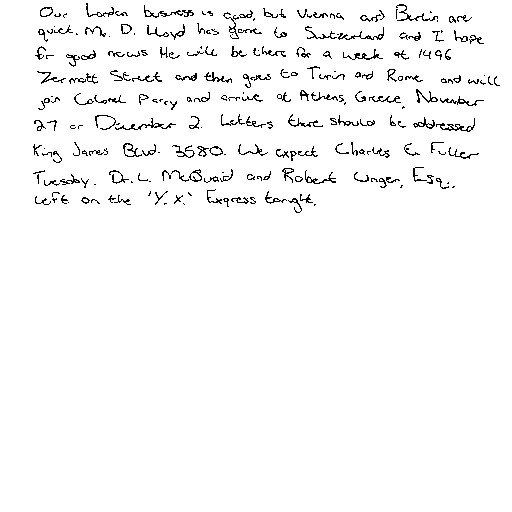 Our London business is good, but Vienna and Berlin are
quiet. Mr. D. Lloyd has gone to Switzerland and I hope
for good news. He will be there for a week at 1496
Zermatt Street and then goes to Turin and Rome and will
join Colonel Parry and arrive at Athens, Greece, November
27 or December 2. Letters there should be addressed
King James Blvd. 3580. We expect Charles E. Fuller
Tuesday. Dr. L. McQuaid and Robert Unger, Esq.,
left on the 'Y.X.' Express tonight.